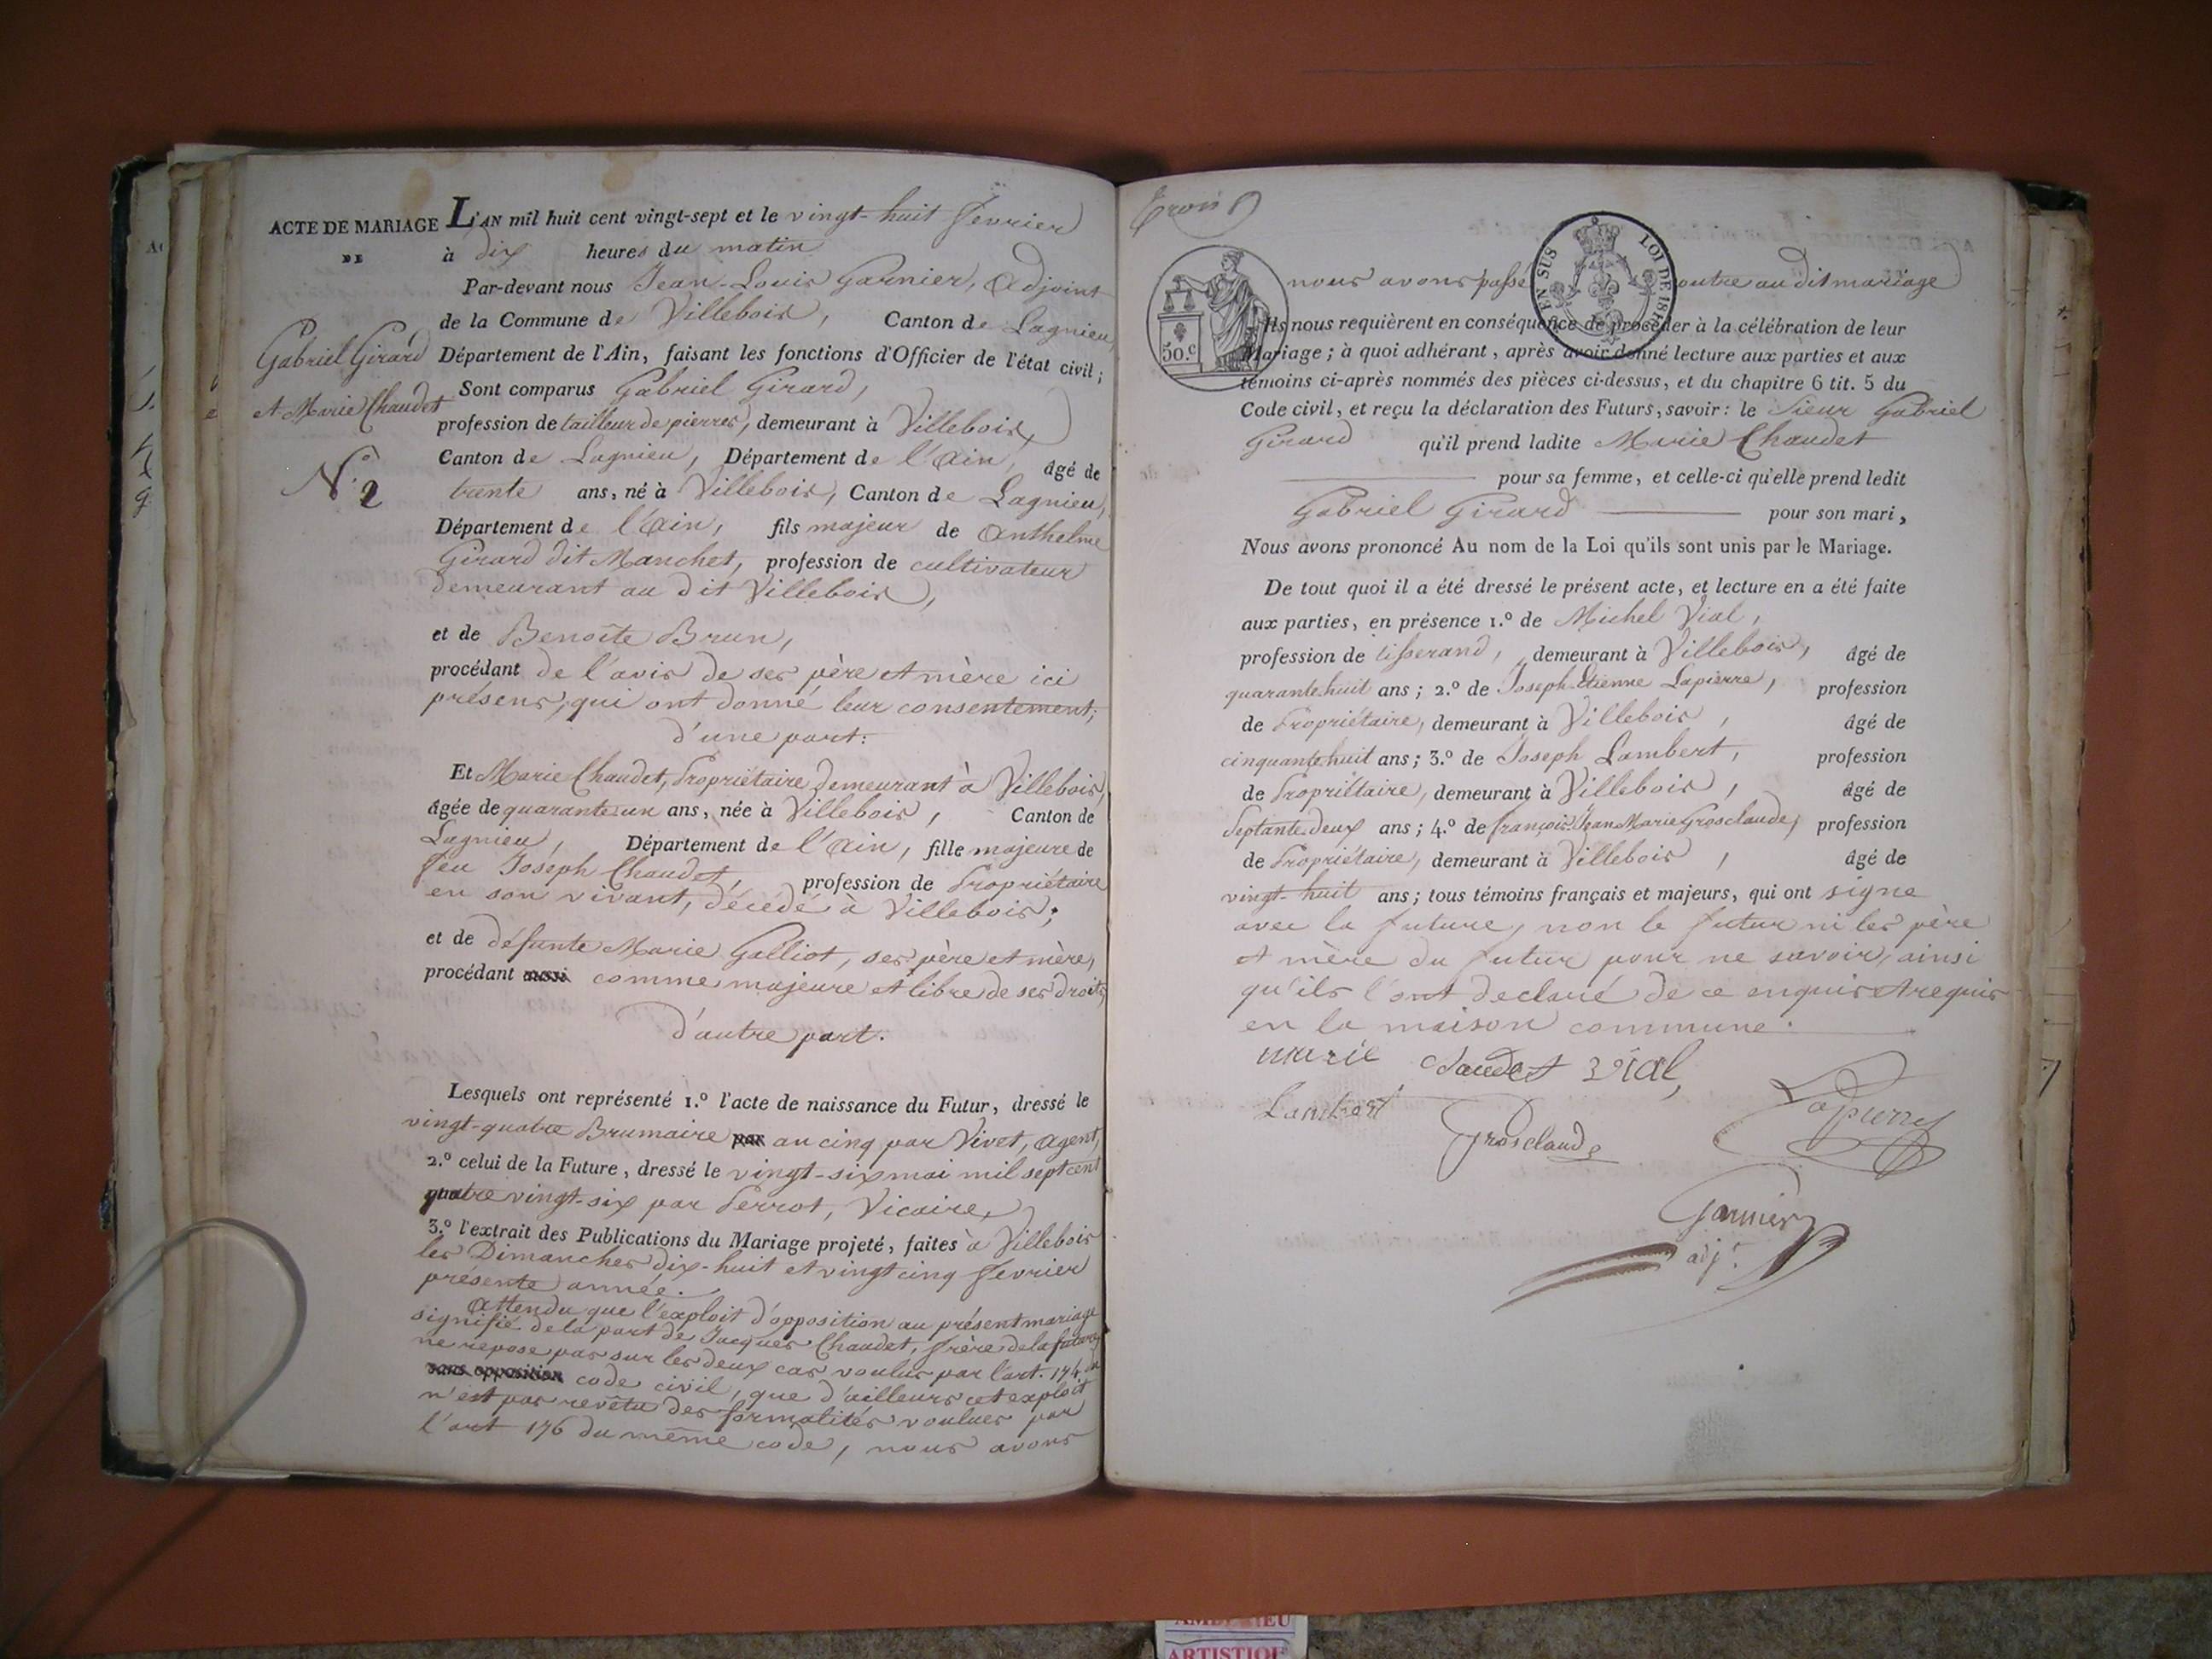 ACTE DE MARIAGE
DE
Gabriel Girard
et Marie Chaudet
N.º 2
L'AN mil huit cent vingt-sept et le vingt-huit fevrier
à dix heures du matin
Par-devant nous Jean-Louis Garnier, Adjoint
de la Commune de Villebois, Canton de Lagnieu,
Département de l'Ain, faisant les fonctions d'Officier de l'état civil;
Sont comparus Gabriel Girard,
profession de tailleur de pierres, demeurant à Villebois,
Canton de Lagnieu, Département de l'Ain, âgé de
trente ans, né à Villebois, Canton de Lagnieu,
Département de l'Ain, fils majeur de Anthelme
Girard dit Manchet, profession de cultivateur
demeurant au dit Villebois,
et de Benoîte Brun,
procédant de l'avis de ses père et mère ici
présens, qui ont donné leur consentement;
d'une part:
Et Marie Chaudet, Propriétaire demeurant à Villebois,
âgée de quarante un ans, née à Villebois, Canton de
Lagnieu, Département de l'Ain, fille majeure de
feu Joseph Chaudet, profession de Propriétaire
en son vivant, décédé à Villebois;
et de défunte Marie Galliot, ses père et mère,
procédant comme majeure et libre de ses droits
d'autre part.
Lesquels ont représenté 1.º l'acte de naissance du Futur, dressé le
vingt-quatre Brumaire par an cinq par Vivet, Agent,
2.º celui de la Future, dressé le vingt-six mai mil sept cent
quatre vingt-six par Perrot, Vicaire,
3.º l'extrait des Publications du Mariage projeté, faites à Villebois
les Dimanches dix-huit et vingt cinq fevrier
présente année.
Attendu que l'exploit d'opposition au présent mariage
signifié de la part de Jacques Chaudet, frère de la future
ne repose pas sur les deux cas voulus par l'art. 174 du
sans opposition code civil, que d'ailleurs cet exploit
n'est pas revêtu des formalités voulues par
l'art 176 du même code, nous avons
trois
50.c
EN SUS LOI DE 1816
nous avons passé outre au dit mariage
Ils nous requièrent en conséquence de procéder à la célébration de leur
Mariage; à quoi adhérant, après avoir donné lecture aux parties et aux
témoins ci-après nommés des pièces ci-dessus, et du chapitre 6 tit. 5 du
Code civil, et reçu la déclaration des Futurs, savoir: le Sieur Gabriel
Girard qu'il prend ladite Marie Chaudet
pour sa femme, et celle-ci qu'elle prend ledit
Gabriel Girard pour son mari,
Nous avons prononcé Au nom de la Loi qu'ils sont unis par le Mariage.
De tout quoi il a été dressé le présent acte, et lecture en a été faite
aux parties, en présence 1.º de Michel Vial,
profession de tisserand, demeurant à Villebois, âgé de
quarante huit ans; 2.º de Joseph-Etienne Lapierre, profession
de Propriétaire, demeurant à Villebois, âgé de
cinquante huit ans; 3.º de Joseph Lambert, profession
de Propriétaire, demeurant à Villebois, âgé de
septante deux ans; 4.º de françois Jean Marie Grosclaude, profession
de Propriétaire, demeurant à Villebois, âgé de
vingt-huit ans; tous témoins français et majeurs, qui ont signe
avec la future, non le futur ni les père
et mère du futur pour ne savoir, ainsi
qu'ils l'ont declaré de ce enquis et requis
en la maison commune.
marie chaudet Vial
Lambert Grosclaude Lapierre
Garnier
adj.t
ARTISTIQUE